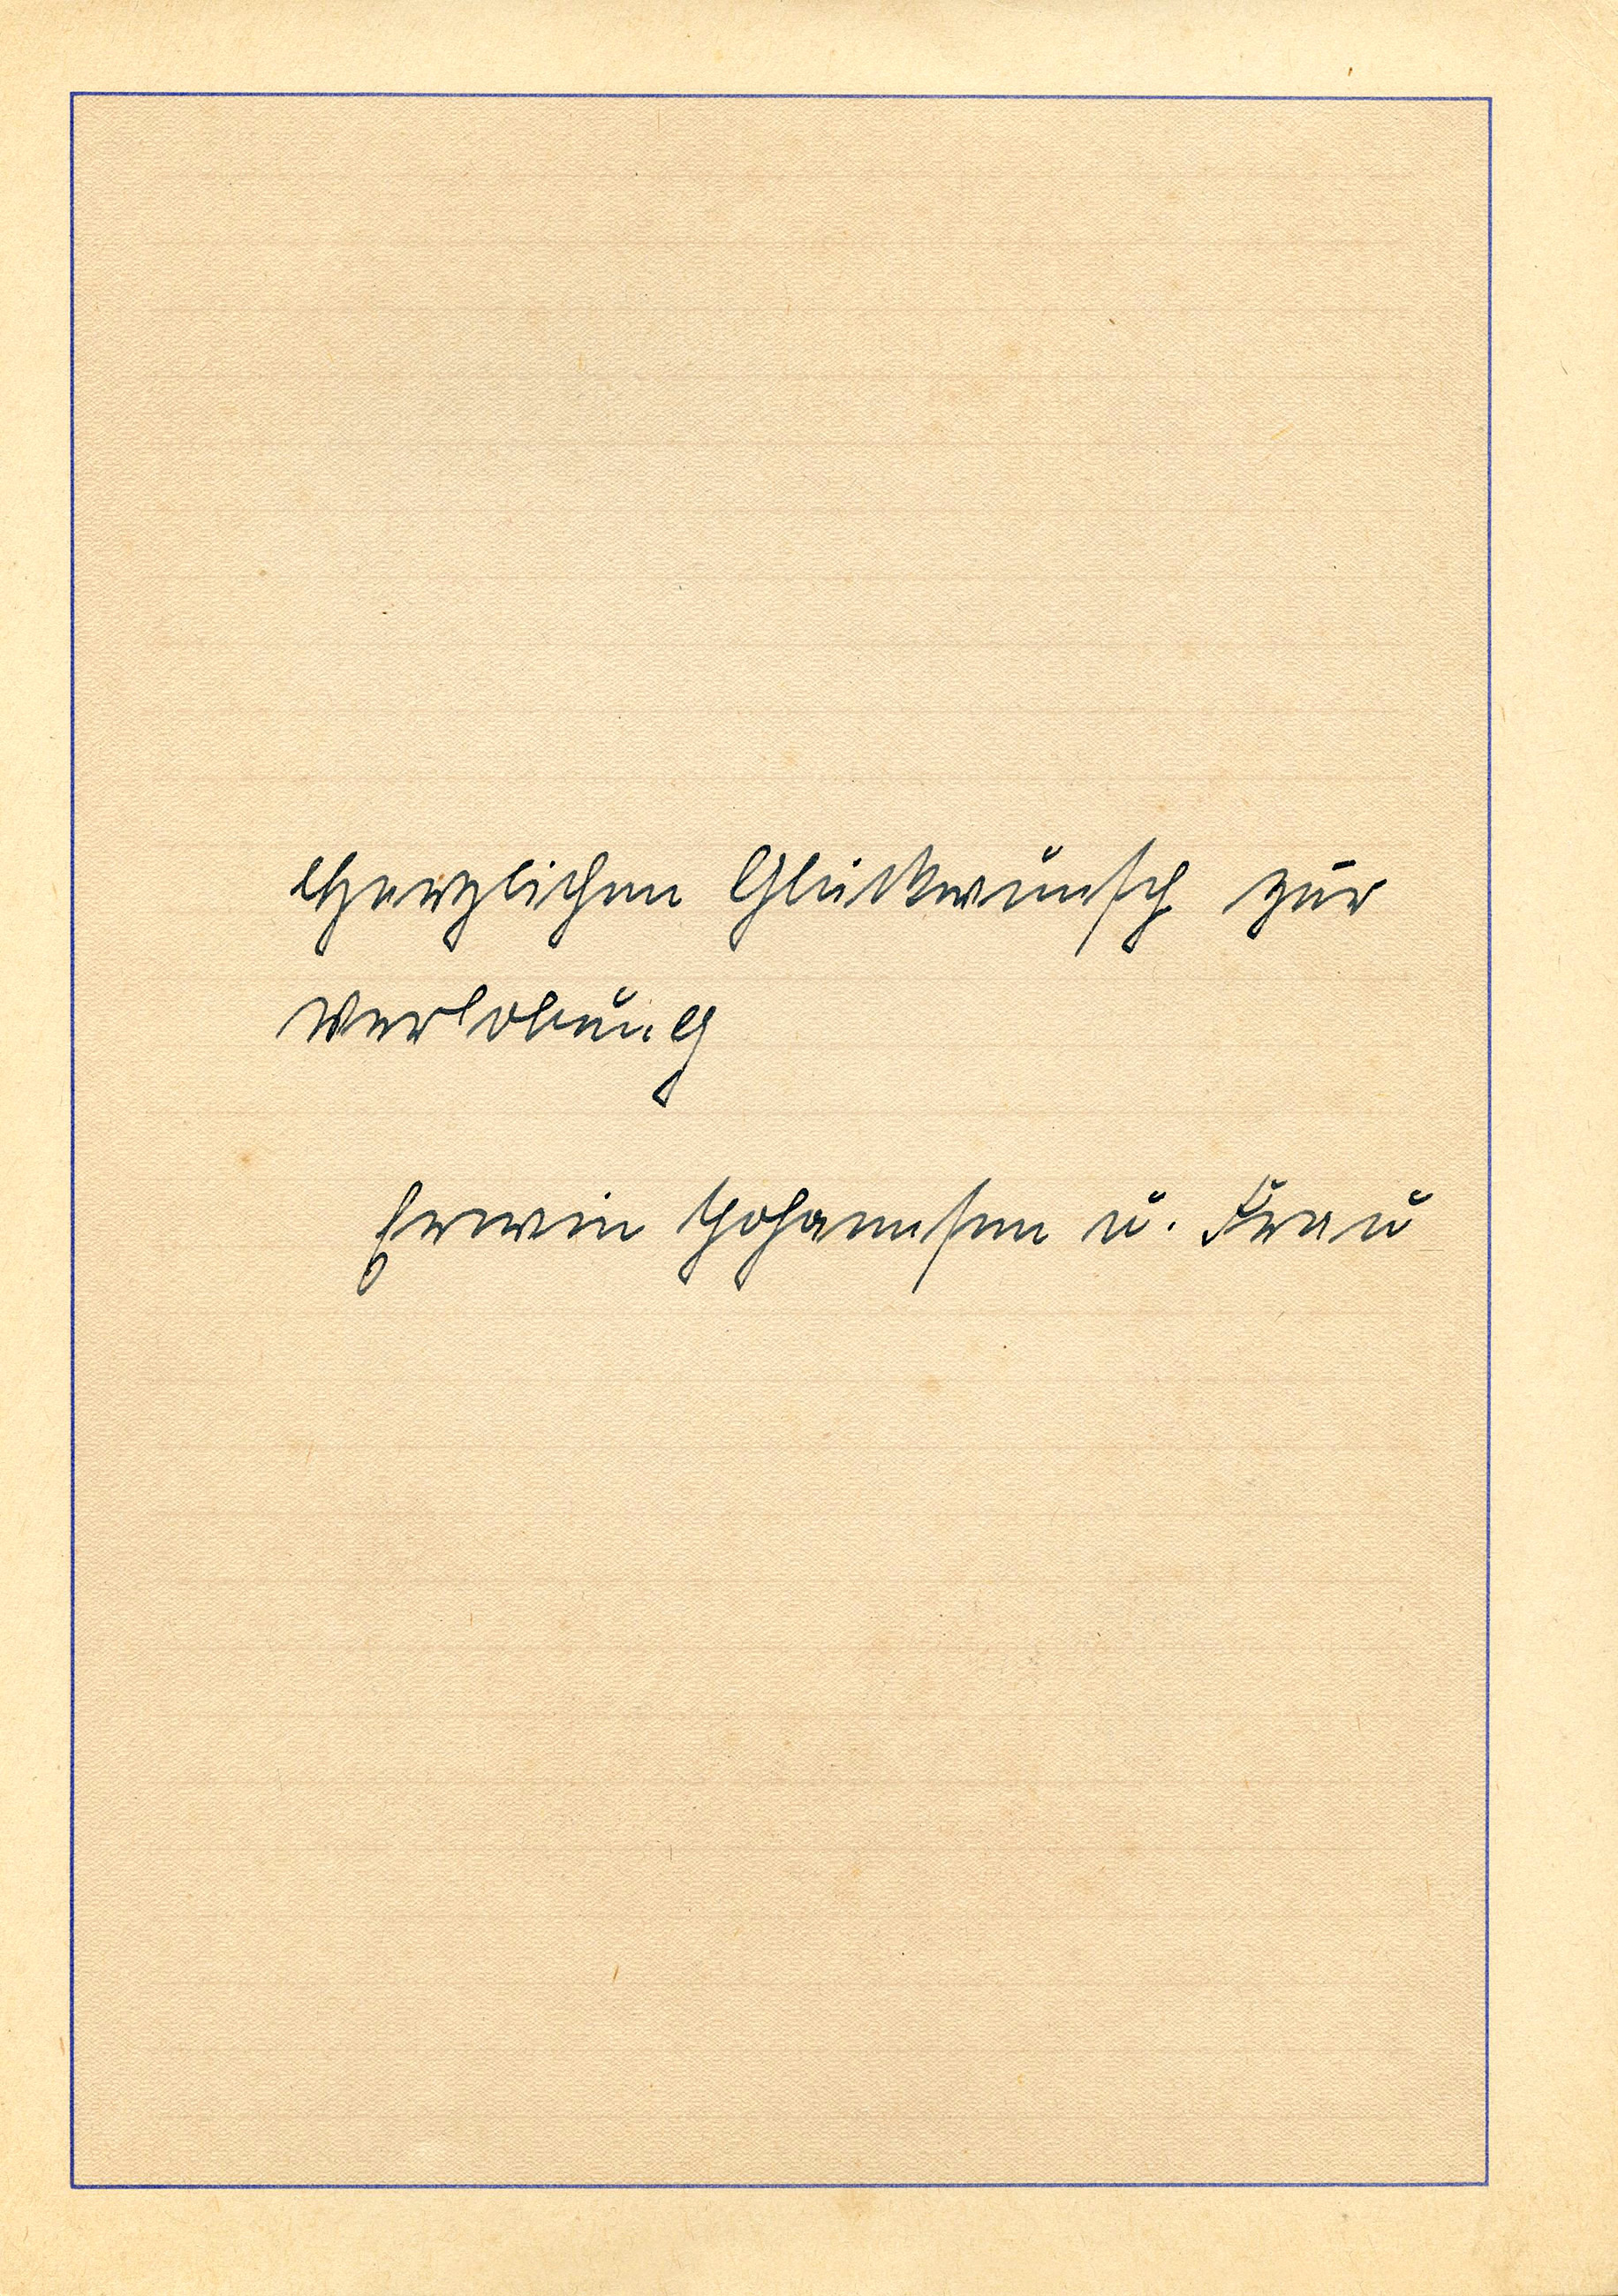 Herzlichen Glückwunsch zur
Verlobung
Erwin Johannsen u. Frau